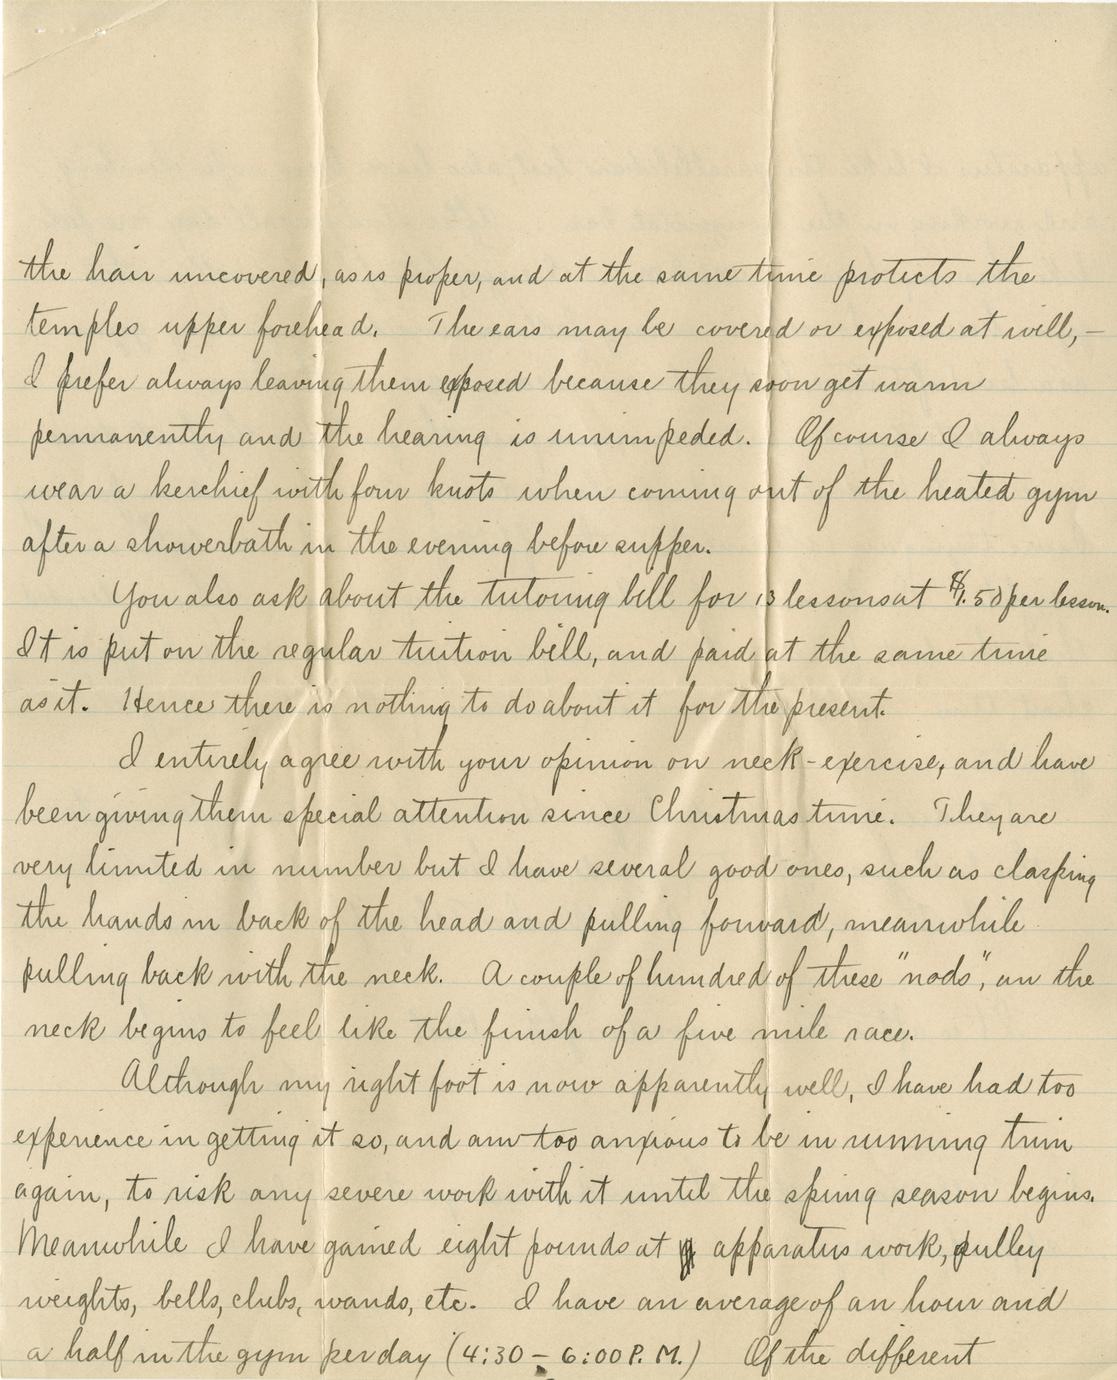 the hair uncovered, as is proper, and at the same time protects the
temples upper forehead. The ears may be covered or exposed at will,—
I prefer always leaving them exposed because they soon get warm
permanently and the hearing is unimpeded. Of course I always
wear a kerchief with four knots when coming out of the heated gym
after a showerbath in the evening before supper.
You also ask about the tutoring bill for 13 lessons at $1.50 per lesson.
It is put on the regular tuition bill, and paid at the same time
as it. Hence there is nothing to do about it for the present.
I entirely agree with your opinion on neck-exercise, and have
been giving them special attention since Christmas time. They are
very limited in number but I have several good ones, such as clasping
the hands in back of the head and pulling forward, meanwhile
pulling back with the neck. A couple of hundred of these "nods", an the
neck begins to feel like the finish of a five mile race.
Although my right foot is now apparently well, I have had too
experience in getting it so, and am too anxious to be in running trim
again, to risk any severe work with it until the spring season begins.
Meanwhile I have gained eight pounds at apparatus work, pulley
weights, bells, clubs, wands, etc. I have an average of an hour and
a half in the gym per day (4:30 – 6:00 P.M.) Of the different